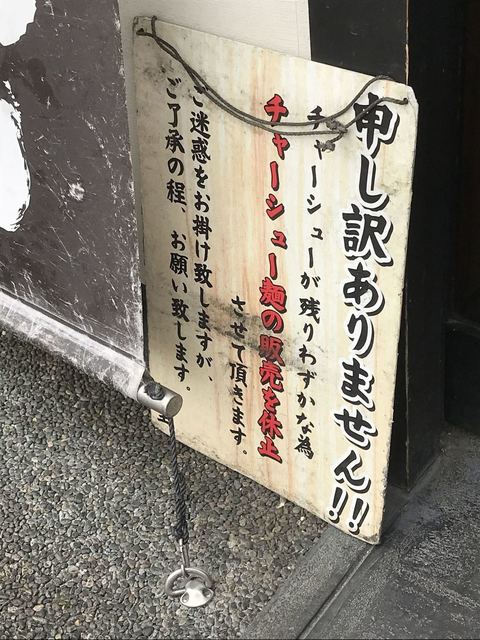 申し訳ありません!!
チャーシューが残りわずかな為
チャーシュー麺の販売を休止
させて頂きます。
ご迷惑をお掛け致しますが、
ご了承の程、お願い致します。